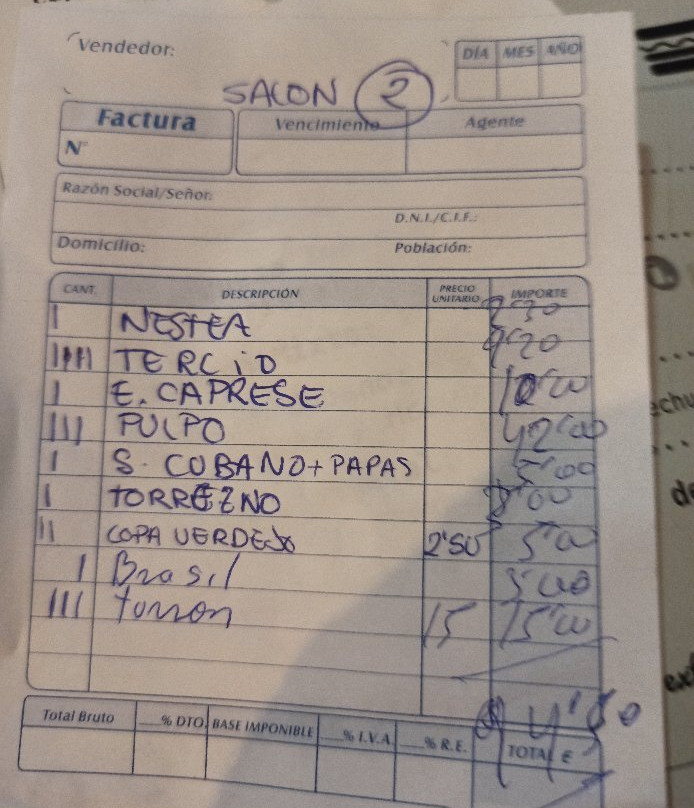 Vendedor:
DÍA MES AÑO
SALON 2
Factura Vencimiento Agente
N°
Razón Social/Señor:
D.N.I./C.I.F.:
Domicilio: Población:
CANT. DESCRIPCIÓN PRECIO UNITARIO IMPORTE
I NESTEA
TERCiO
I E. CAPRESE 10'00
III PULPO 42'00
I S. CUBANO + PAPAS 5'00
I TORREZNO 8'00
II COPA VERDEJO 2'50 5'00
I Brasil
III turron 15 15'00
Total Bruto % DTO. BASE IMPONIBLE % I.V.A. % R.E. TOTAL €